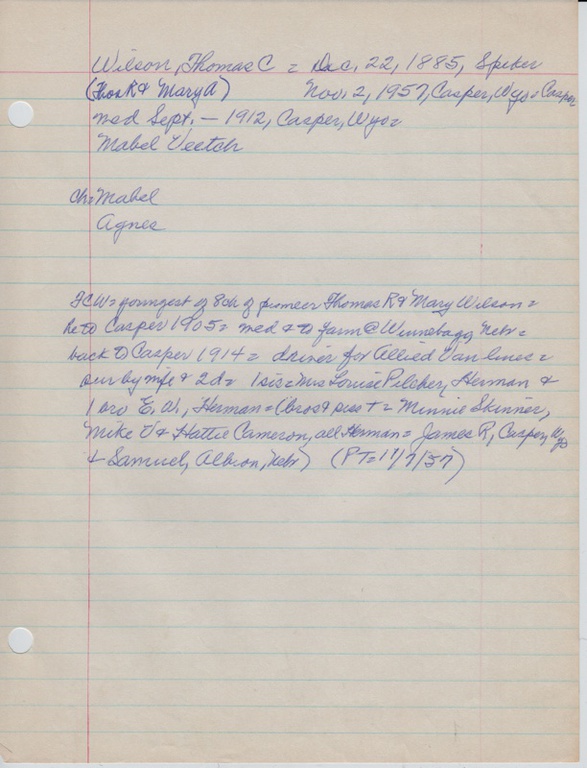 Wilson, Thomas C = Dec. 22, 1885, Spiker
(Thos R & Mary A) Nov. 2, 1957, Casper, Wyo = Casper
med Sept. — 1912, Casper, Wyo =
Mabel Veetch
Ch = Mabel
Agnes
TCW = youngest of 8ch of pioneer Thomas R & Mary Wilson =
he to Casper 1905 = med & to farm @ Winnebago, Nebr =
back to Casper 1914 = driver for Allied Van lines =
sur by wife & 2d = 1 sis = Mrs Louise Pilcher, Herman &
1 bro E. W., Herman = (bros & siss + = Minnie Skinner,
Mike V & Hattie Cameron, all Herman = James R, Casper, Wyo
& Samuel, Albion, Nebr) (PT = 11/7/57)